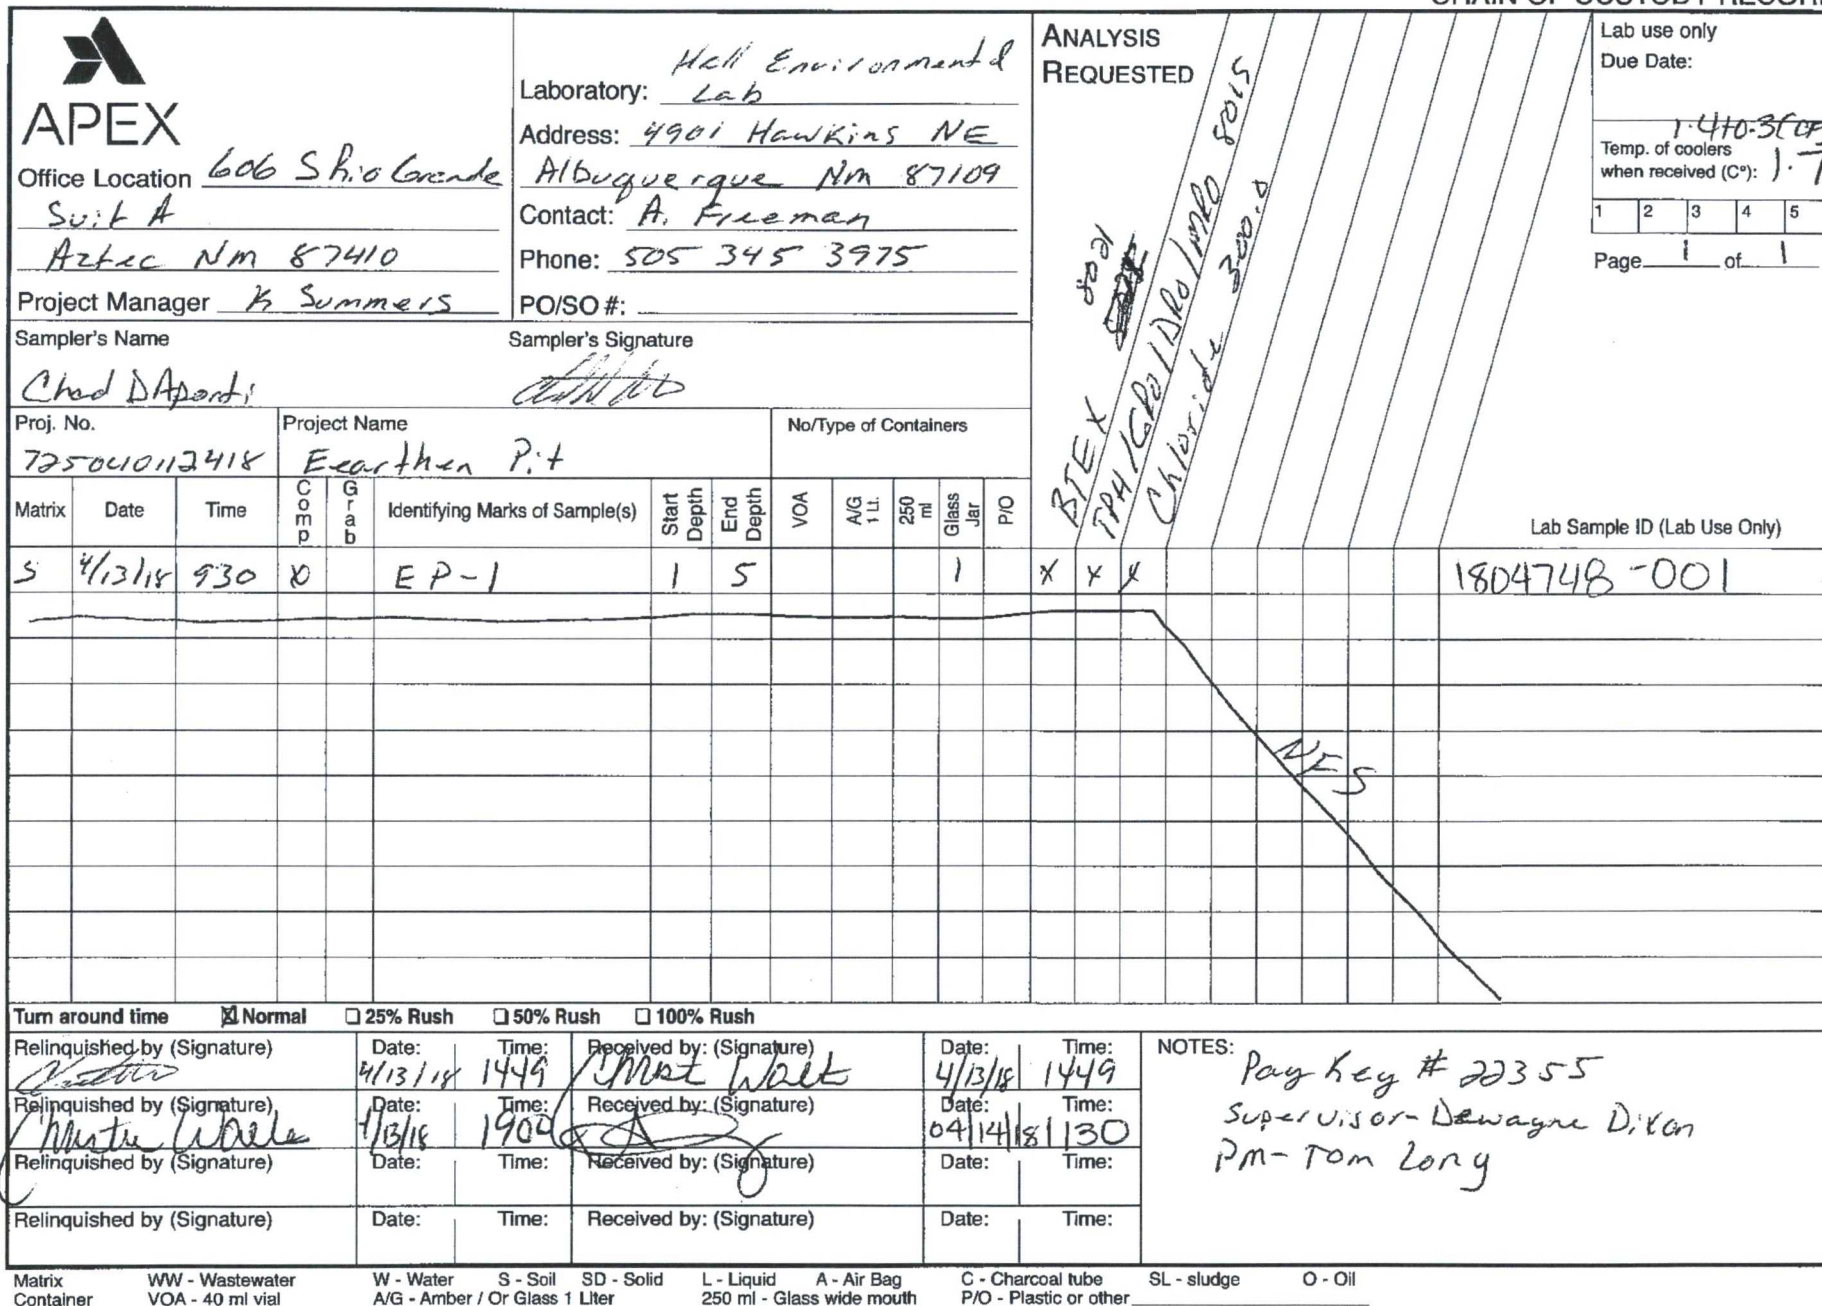 CHAIN OF CUSTODY RECORD
APEX
Office Location 606 S Rio Grande
Suit A
Aztec Nm 87410
Project Manager K Summers
Hall Environmental
Laboratory: Lab
Address: 4901 Hawkins NE
Albuquerque Nm 87109
Contact: A. Freeman
Phone: 505 345 3975
PO/SO #:
ANALYSIS
REQUESTED
BTEX 8021
TPH/GRO/DRO/MRO 8015
Chloride 300.0
Lab use only
Due Date:
Temp. of coolers
when received (C°): 1.7
1 2 3 4 5
Page 1 of 1
Sampler's Name
Chad DAponti
Sampler's Signature
Proj. No.
725040112418
Project Name
Eearthen Pit
No/Type of Containers
Matrix Date Time Comp Grab Identifying Marks of Sample(s) Start Depth End Depth VOA A/G 1 Lt. 250 ml Glass Jar P/O Lab Sample ID (Lab Use Only)
S 4/13/18 930 X EP-1 1 5 1 X X X 1804748-001
NFS
Turn around time ☒ Normal ☐ 25% Rush ☐ 50% Rush ☐ 100% Rush
Relinquished by (Signature) Date: 4/13/18 Time: 1449 Received by: (Signature) Date: 4/13/18 Time: 1449
Relinquished by (Signature) Date: 4/13/18 Time: Received by: (Signature) Date: 04/14/18 Time: 1130
Relinquished by (Signature) Date: Time: Received by: (Signature) Date: Time:
Relinquished by (Signature) Date: Time: Received by: (Signature) Date: Time:
NOTES: Pay Key # 22355
Supervisor- Dewayne Dixon
Pm- Tom Long
Matrix WW - Wastewater W - Water S - Soil SD - Solid L - Liquid A - Air Bag C - Charcoal tube SL - sludge O - Oil
Container VOA - 40 ml vial A/G - Amber / Or Glass 1 Liter 250 ml - Glass wide mouth P/O - Plastic or other